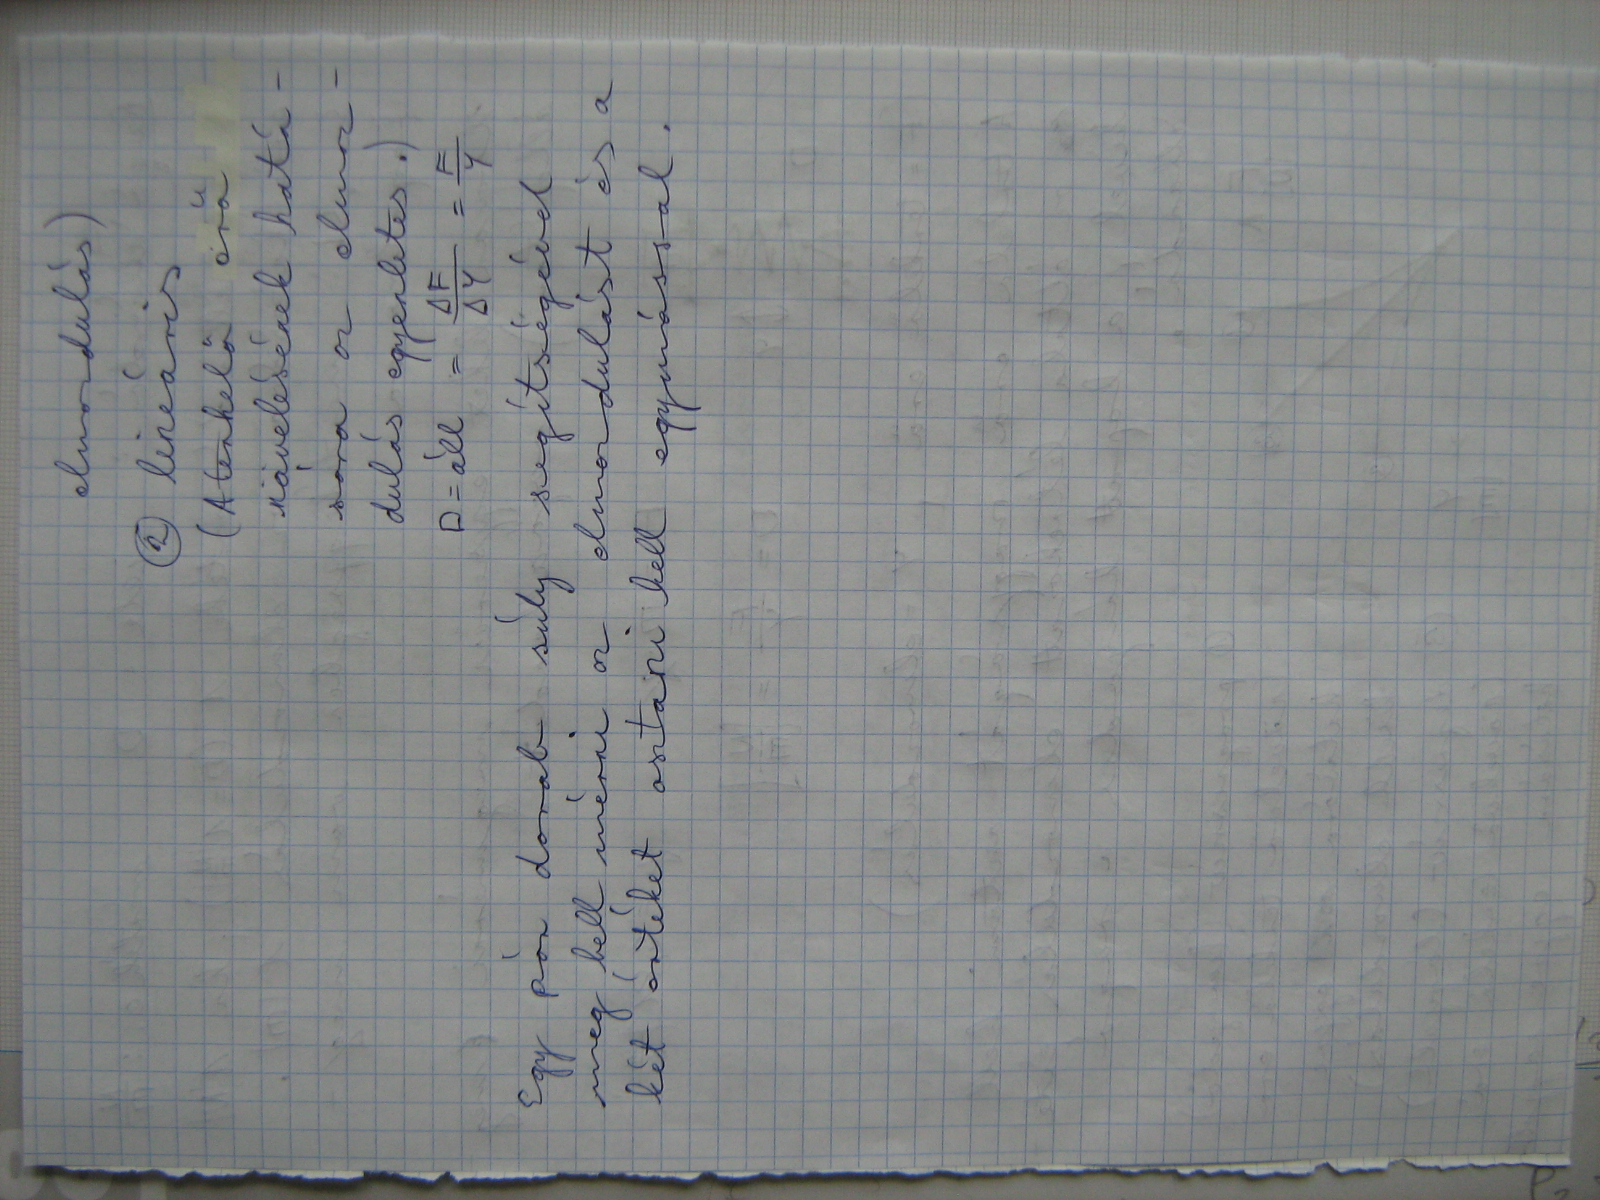 elmozdulás)
② lineáris
(A terhelő erő
növelésének hatá-
sára az elmoz-
dulás egyenletes.)
D = áll = ΔF/ΔY = F/Y
Egy pár darab súly segítségével
meg kell mérni az elmozdulást és a
két értéket osztani kell egymással.